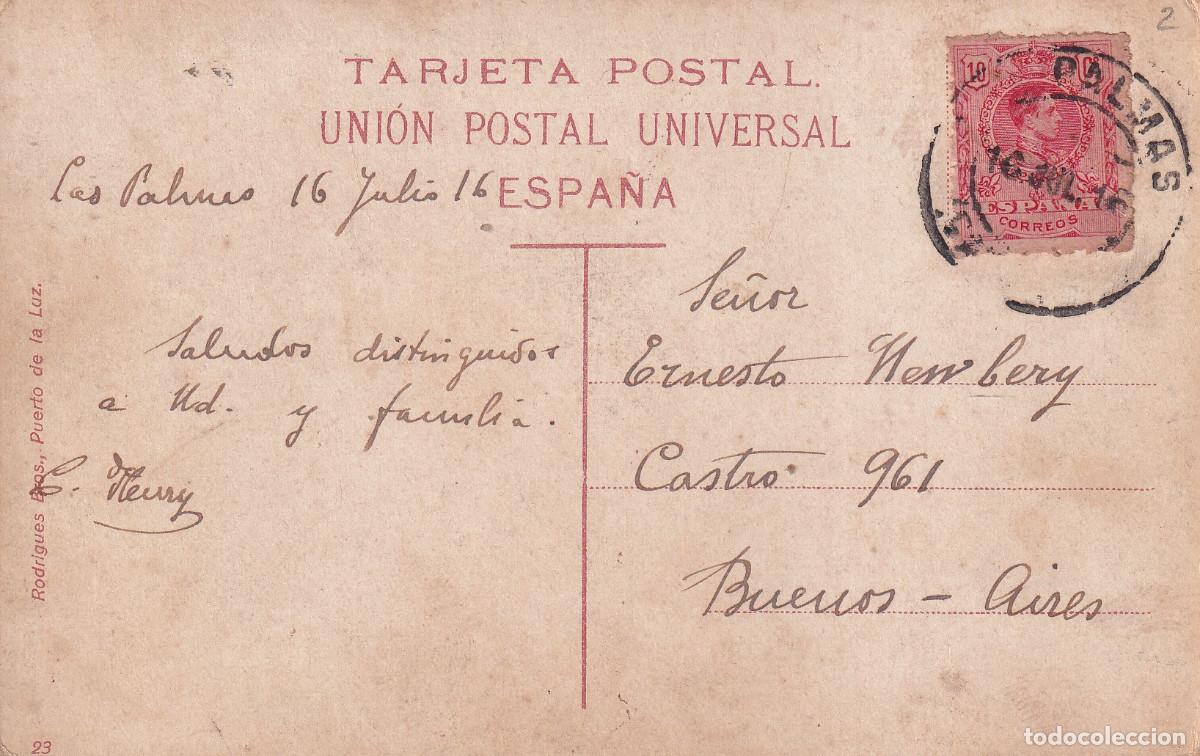 2
TARJETA POSTAL.
UNIÓN POSTAL UNIVERSAL
ESPAÑA
Las Palmas 16 Julio 16
10
PALMAS
16 JUL 16
ESPAÑA
CORREOS
Saludos distinguidos
a Ud. y familia.
C. Henry
Señor
Ernesto Newbery
Castro 961
Buenos - Aires
Rodrigues Bros., Puerto de la Luz.
23
todocoleccion